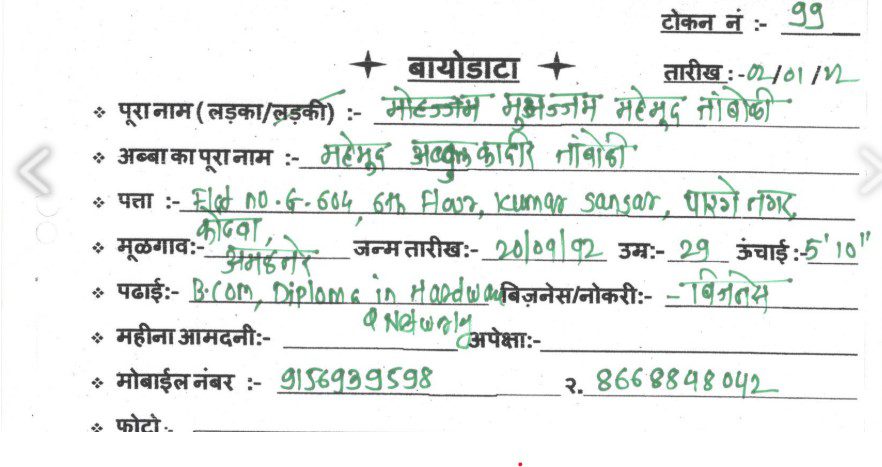 टोकन नं :- 99
बायोडाटा
तारीख :- 02/01/22
पूरा नाम ( लड़का/लड़की) :- मोहज्जम मुअज्जम महेमुद तांबोळी
अब्बा का पूरा नाम :- महेमुद अब्दुल कादीर तांबोळी
पत्ता :- Flat no. G-604, 6th Floor, Kumar Sansar, पारगे नगर,
कोंढवा,
मूळगाव:- अमळनेर जन्म तारीख:- 20/09/92 उम्र:- 29 ऊंचाई :- 5' 10"
पढाई:- B.com, Diploma in Hardware बिज़नेस/नोकरी:- बिजनेस
& Networking
महीना आमदनी:- अपेक्षा:-
मोबाईल नंबर :- 9156939598 २. 8668848042
फोटो :-